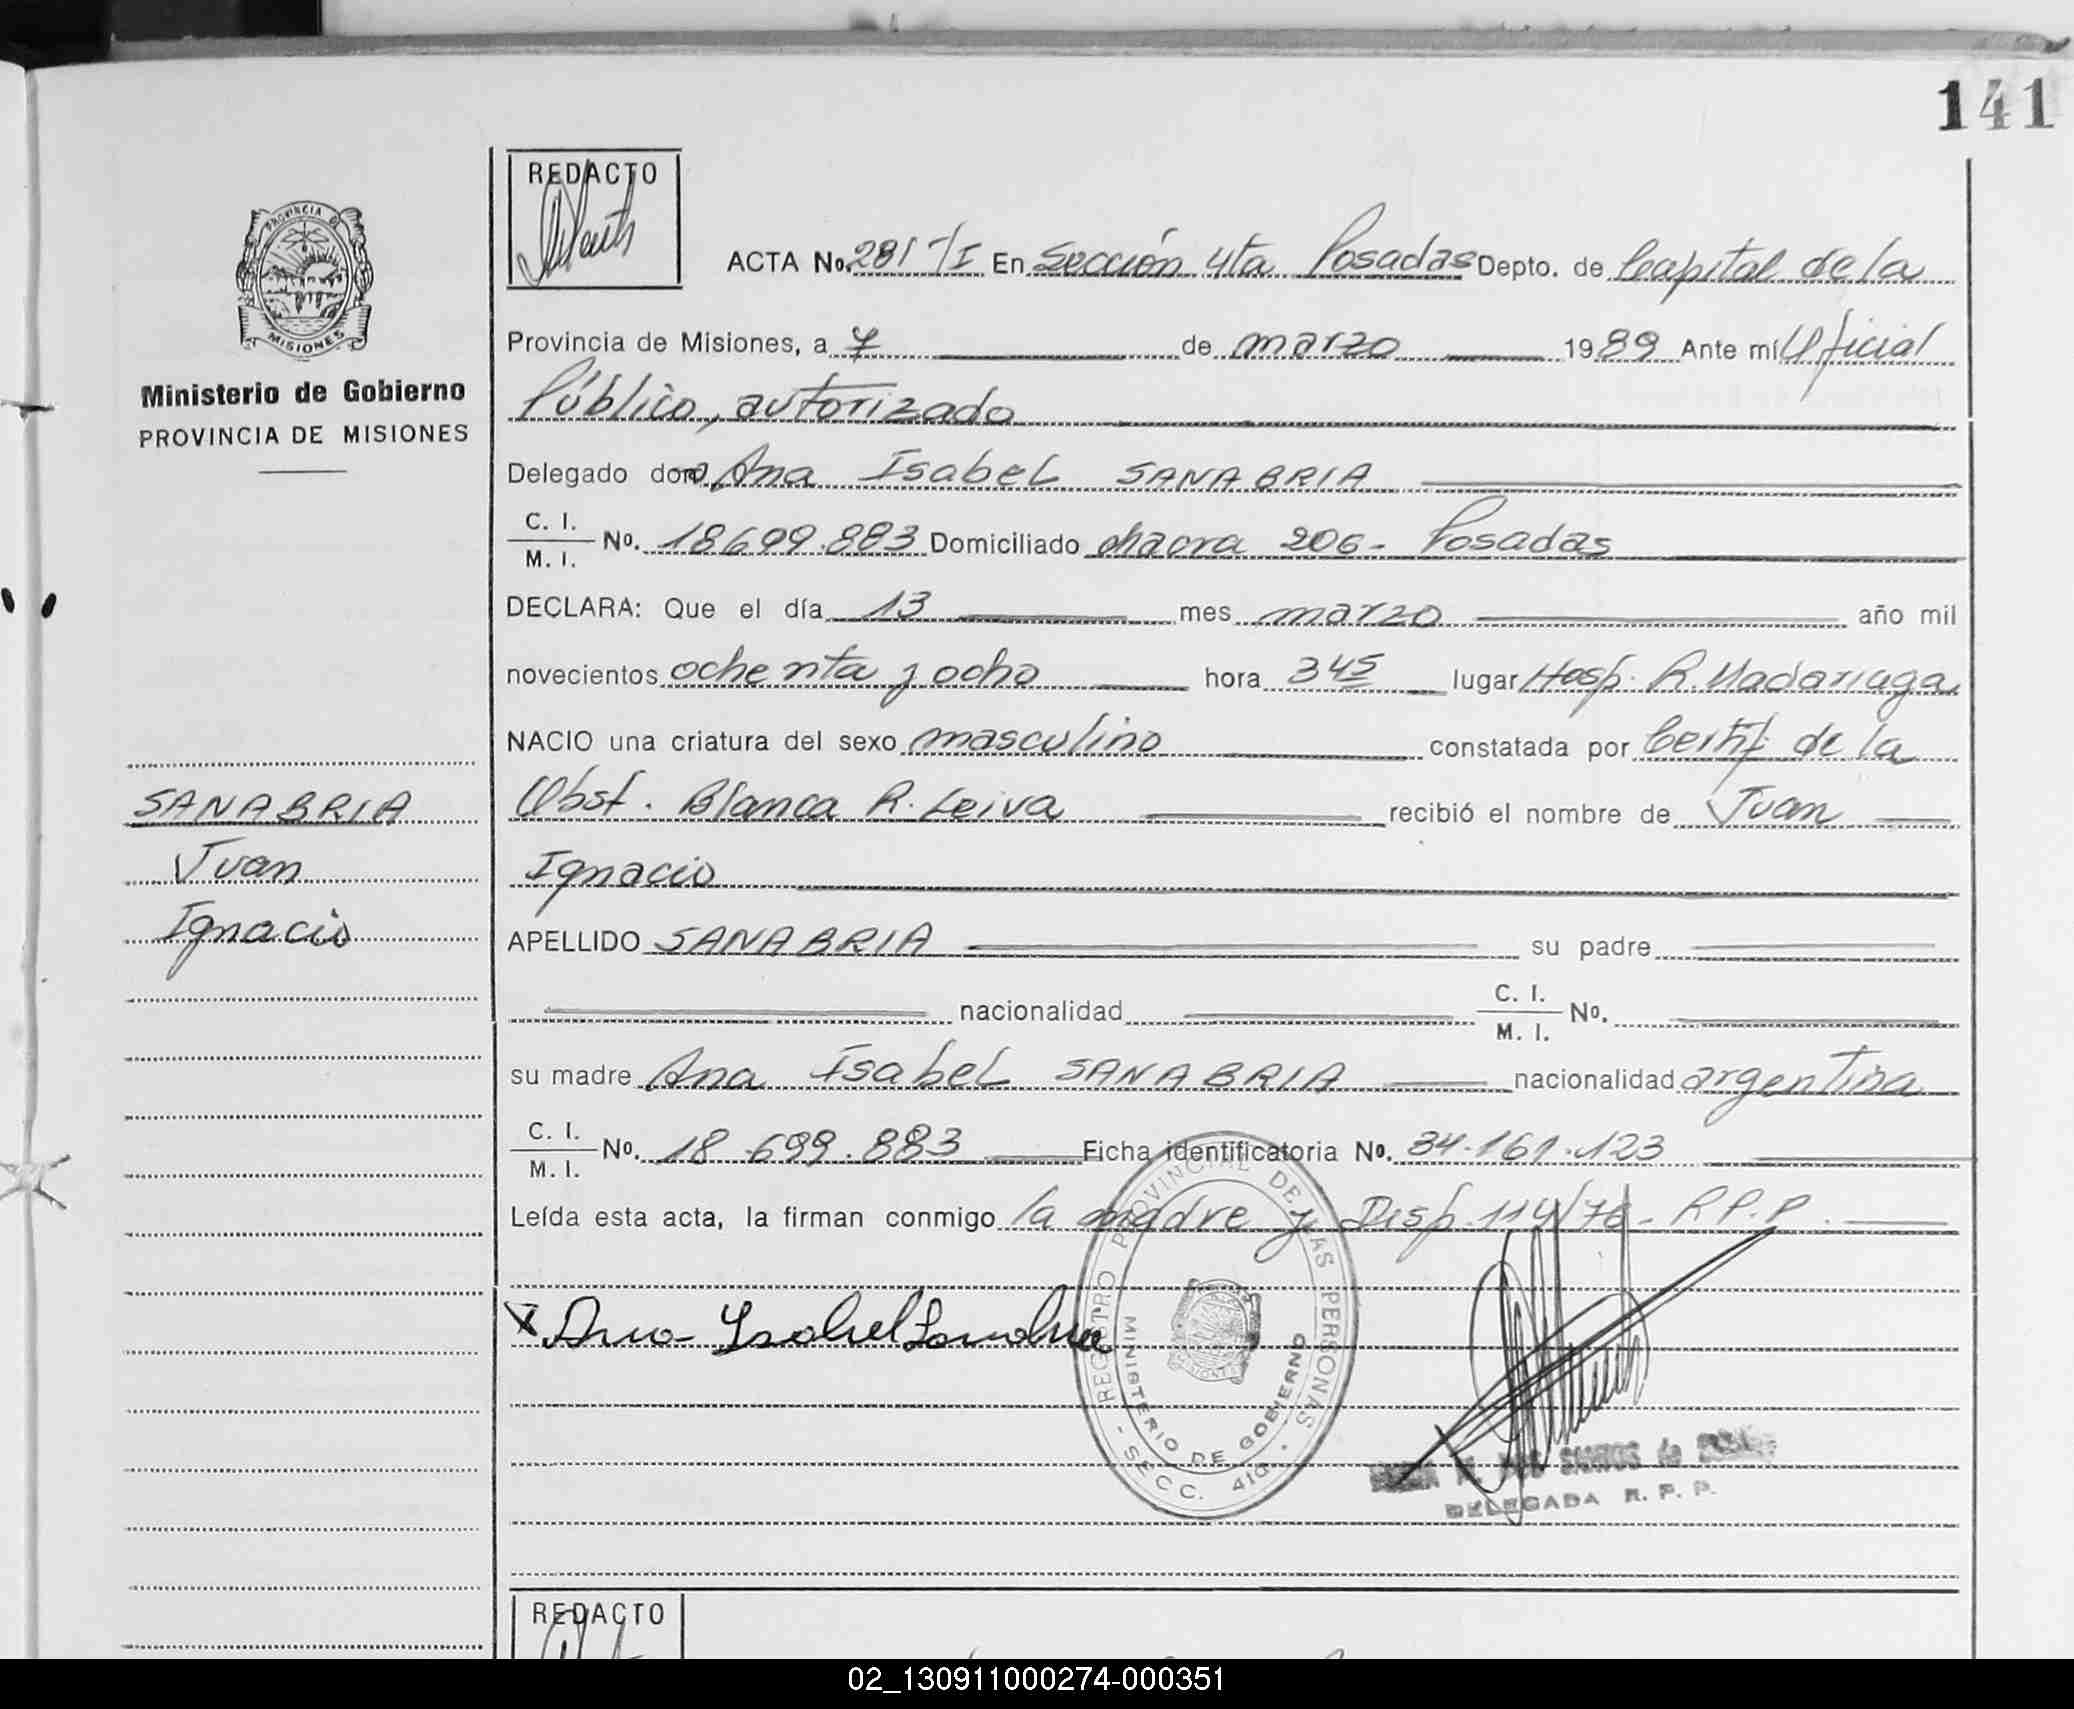 141
REDACTO
PROVINCIA DE
MISIONES
Ministerio de Gobierno
PROVINCIA DE MISIONES
ACTA No. 281 -/I En Sección 4ta Posadas Depto. de Capital de la
Provincia de Misiones, a 7 de marzo 1989 Ante mí Oficial
Público, autorizado
Delegado don Ana Isabel SANABRIA
C. I.
M. I. No. 18699.883 Domiciliado chacra 206- Posadas
DECLARA: Que el día 13 mes marzo año mil
novecientos ochenta y ocho hora 345 lugar Hosp. R. Madariaga
NACIO una criatura del sexo masculino constatada por Certif de la
Obst. Blanca R. Leiva recibió el nombre de Juan
Ignacio
SANABRIA
Juan
Ignacio
APELLIDO SANABRIA su padre
nacionalidad C. I.
M. I. No.
su madre Ana Isabel SANABRIA nacionalidad argentina
C. I.
M. I. No. 18.699.883 Ficha identificatoria No. 34.161.123
Leída esta acta, la firman conmigo la madre y Disp. 114/76- R.P.P.
X Ana Isabel Sanabria
REGISTRO PROVINCIAL DE LAS PERSONAS
MINISTERIO DE GOBIERNO
- SECC. 4ta. -
DOS SANTOS de
DELEGADA R. P. P.
REDACTO
02_130911000274-000351